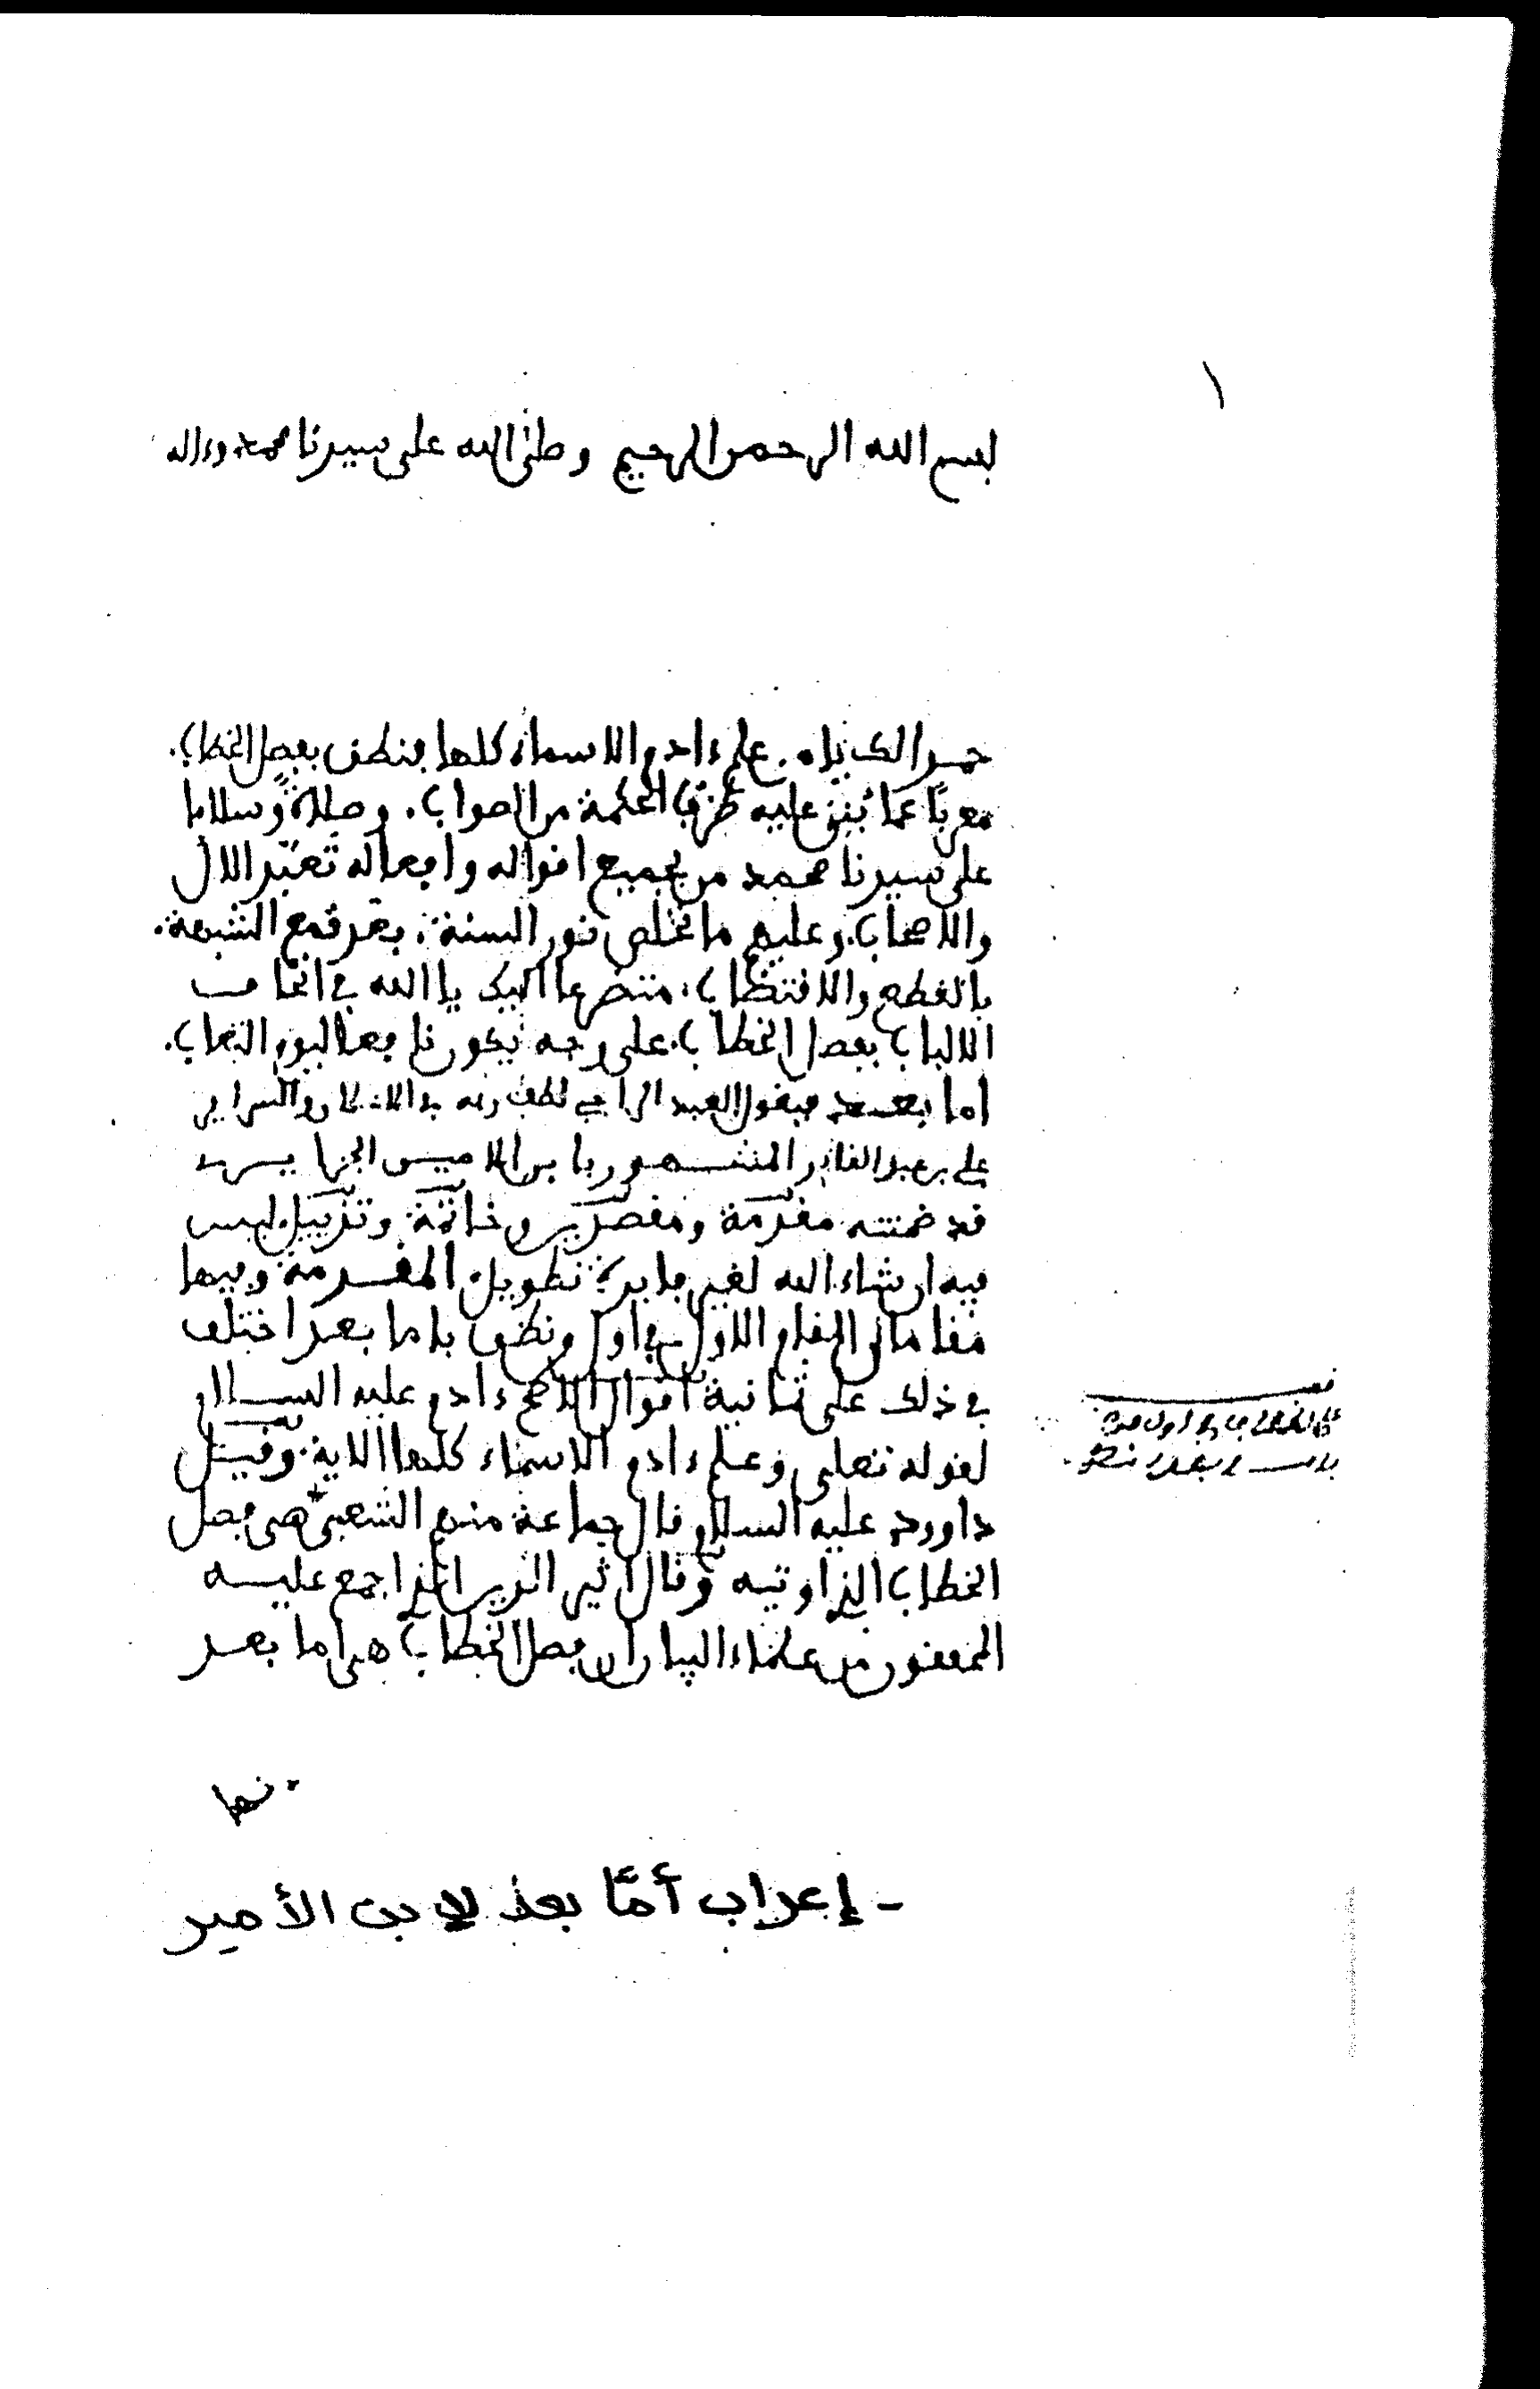 ١
بسم الله الرحمن الرحيم وصلى الله على سيدنا محمد وءاله
حمدا لك يا من علم ءادم الاسماء كلها فنطق بفصل الخطاب.
معربًا عما تُبنى عليه طرق الحكمة من الصواب. وصلاةً وسلاما
على سيدنا محمد من بجميع اقواله وافعاله تعبّد الال
والاصحاب. وعليهم ما تخلص نور السنة. بعد قمع الشبهة.
بالقطع والاقتضاب. متضرعا اليك يا الله في اتحاف
الالباب بفصل الخطاب. على وجه يكون نافعا ليوم المئاب.
اما بعد فيقول العبد الراجي لطف ربه
علي بن عبد القادر المشهور بابن الامين الجزايري
قد ضمنته مقدمة ومقصدين وخاتمة وتذييل ليس
فيه ان شاء الله لغير فايدة تطويل. المقدمة وفيها
مقامان المقام الاول في اول من نطق باما بعد اختلف
في ذلك على ثمانية اقوال الاصح ءادم عليه السلام
لقوله تعلى وعلم ءادم الاسماء كلها الاية. وقيل
داوود عليه السلام قال جماعة منهم الشعبي هي فصل
الخطاب الذي اوتيه وقال اثير الدين الذي اجمع عليه
المحققون من علماء البيان ان فصل الخطاب هي اما بعد
- إعراب أمَّا بعد لابن الأمير